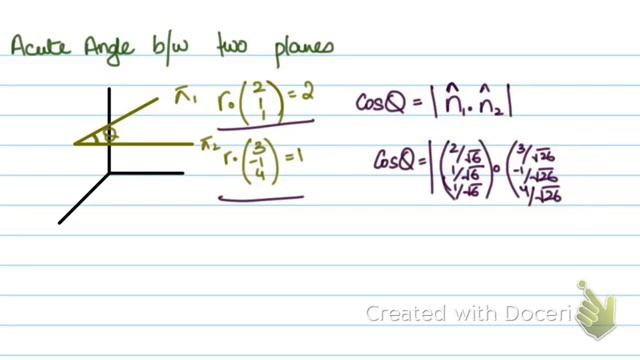 Acute Angle b/w two planes
π1
r•(2 1 1) = 2
π2
r•(3 -1 4) = 1
θ
cosθ = | n̂1 • n̂2 |
cosθ = | (2/√6 1/√6 1/√6) • (3/√26 -1/√26 4/√26)
Created with Doceri